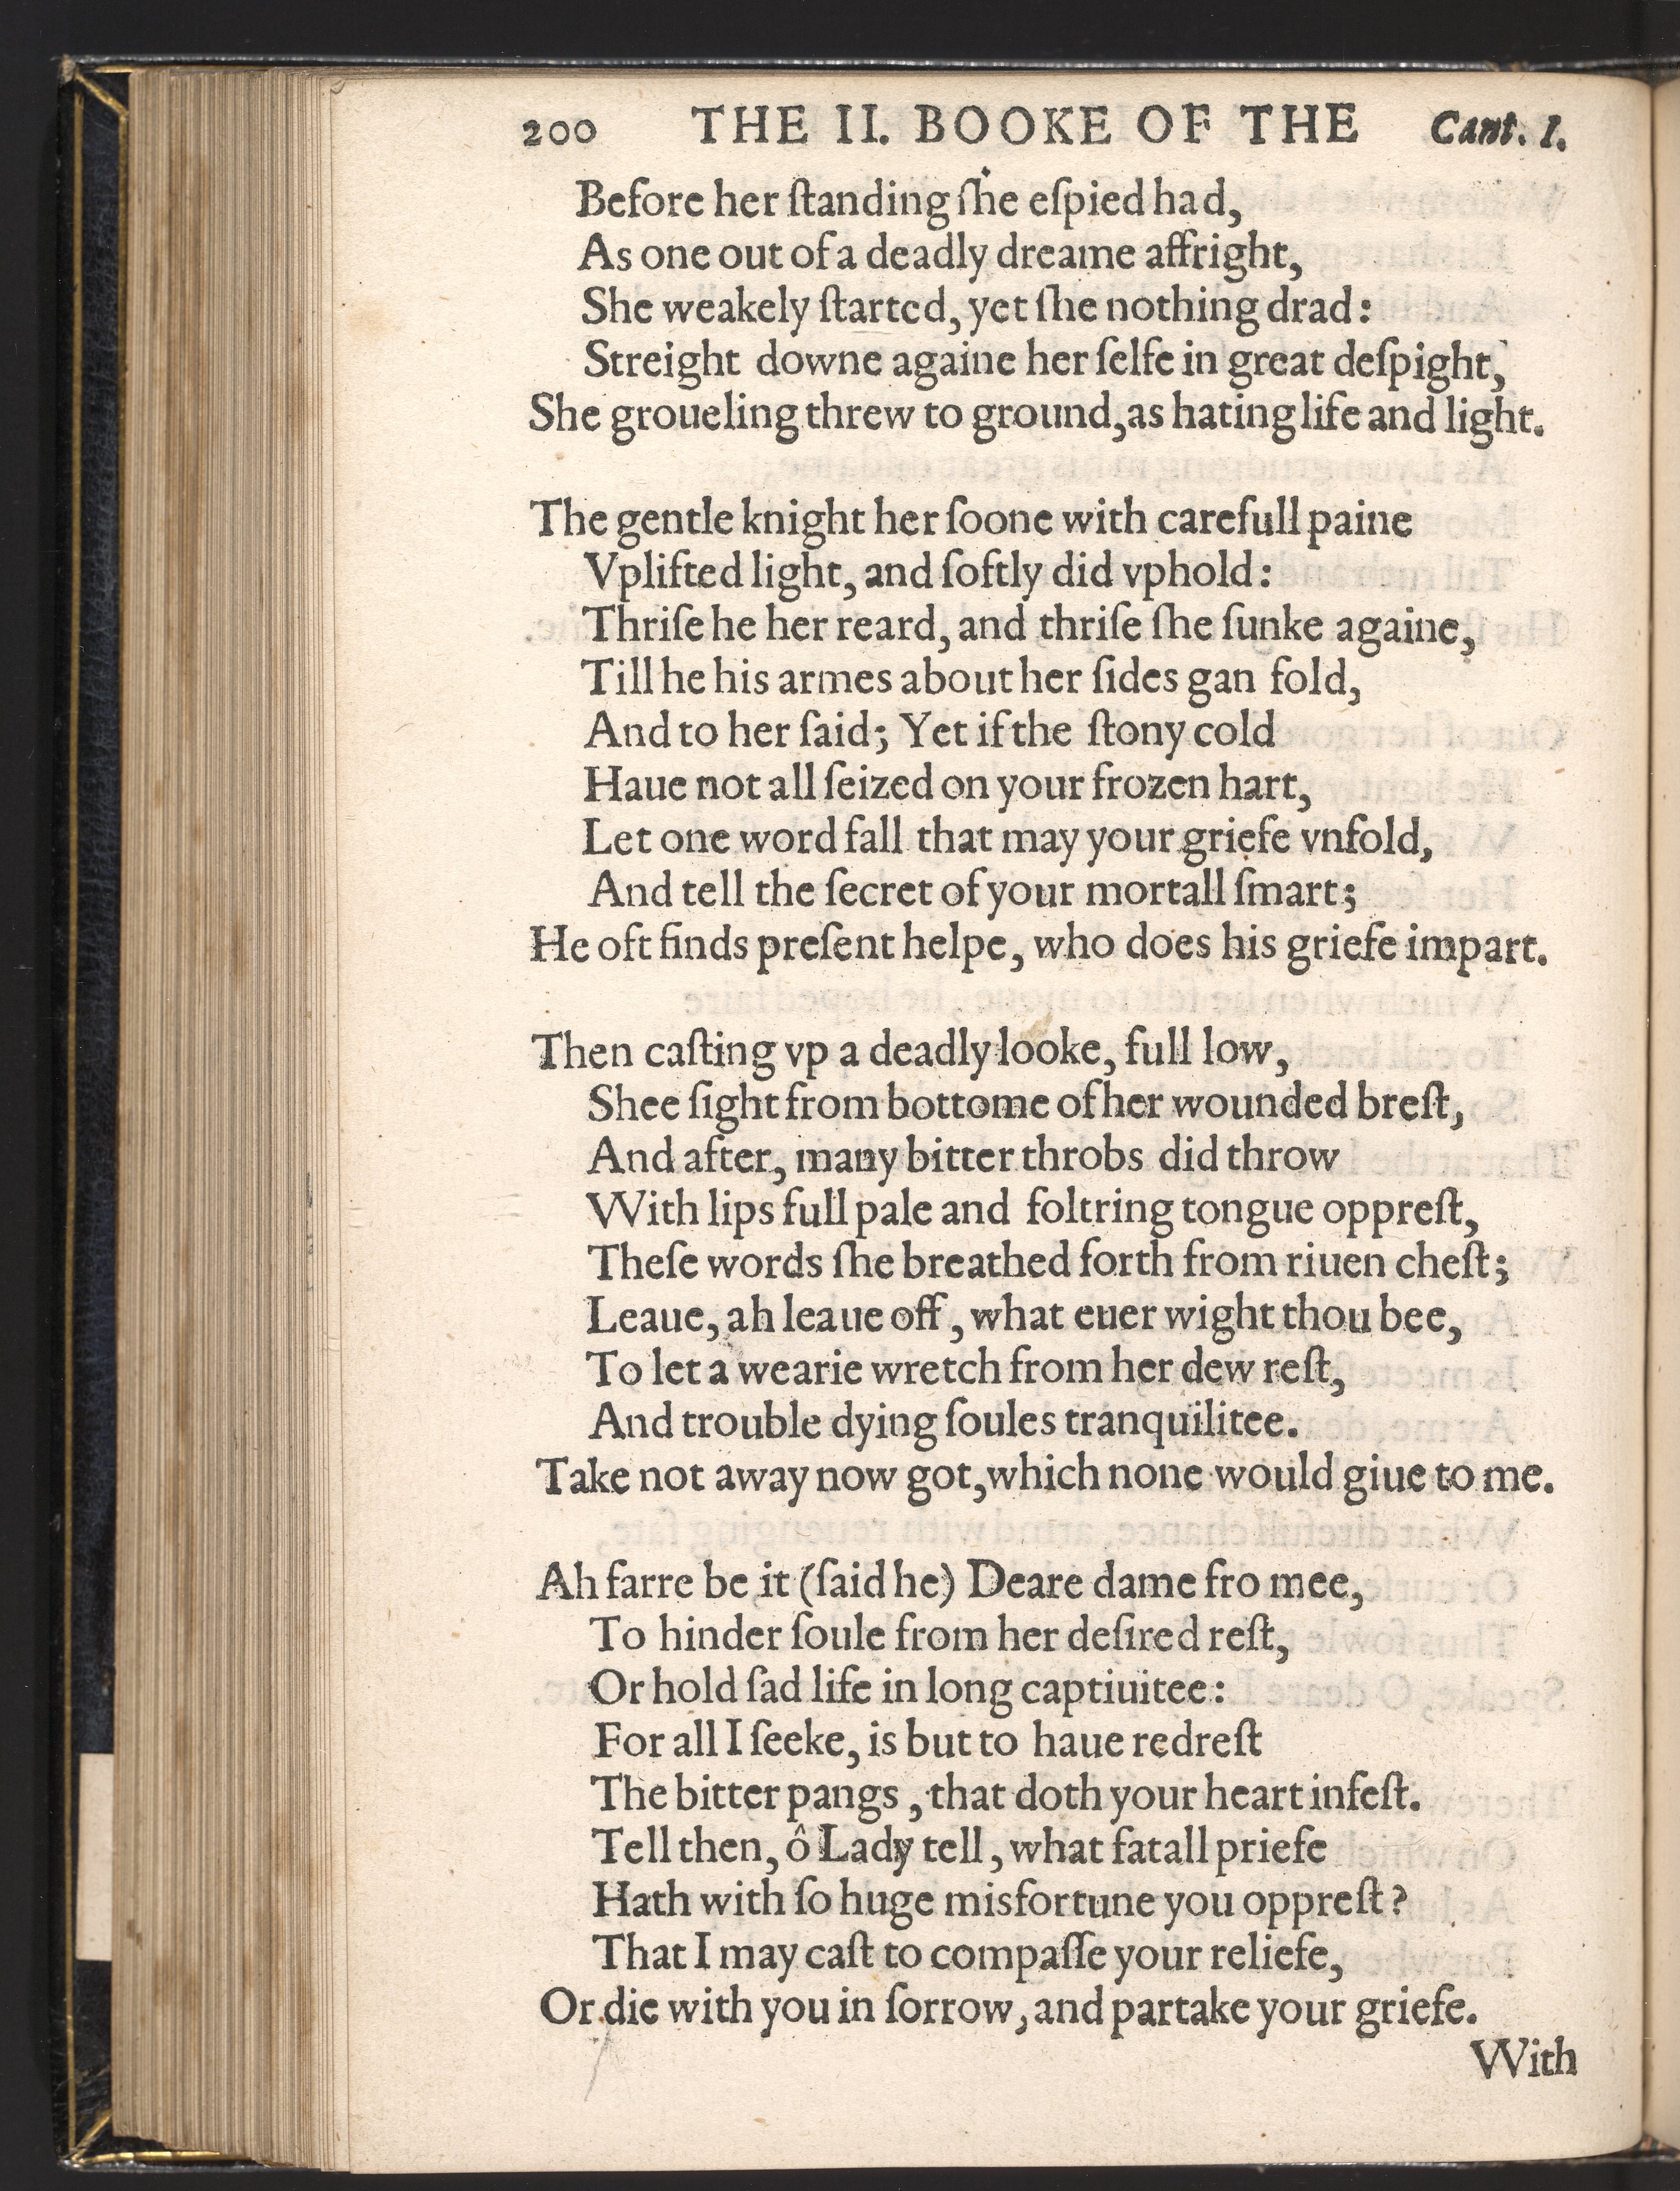 200 THE II. BOOKE OF THE Cant. I.
Before her ſtanding ſhe eſpied had,
As one out of a deadly dreame affright,
She weakely ſtarted, yet ſhe nothing drad:
Streight downe againe her ſelfe in great deſpight,
She groueling threw to ground, as hating life and light.
The gentle knight her ſoone with carefull paine
Vplifted light, and ſoftly did vphold:
Thriſe he her reard, and thriſe ſhe ſunke againe,
Till he his armes about her ſides gan fold,
And to her ſaid; Yet if the ſtony cold
Haue not all ſeized on your frozen hart,
Let one word fall that may your griefe vnfold,
And tell the ſecret of your mortall ſmart;
He oft finds preſent helpe, who does his griefe impart.
Then caſting vp a deadly looke, full low,
Shee ſight from bottome of her wounded breſt,
And after, many bitter throbs did throw
With lips full pale and foltring tongue oppreſt,
Theſe words ſhe breathed forth from riuen cheſt;
Leaue, ah leaue off, what euer wight thou bee,
To let a wearie wretch from her dew reſt,
And trouble dying ſoules tranquilitee.
Take not away now got, which none would giue to me.
Ah farre be it (ſaid he) Deare dame fro mee,
To hinder ſoule from her deſired reſt,
Or hold ſad life in long captiuitee:
For all I ſeeke, is but to haue redreſt
The bitter pangs, that doth your heart infeſt.
Tell then, ô Lady tell, what fatall priefe
Hath with ſo huge misfortune you oppreſt?
That I may caſt to compaſſe your reliefe,
Or die with you in ſorrow, and partake your griefe.
With